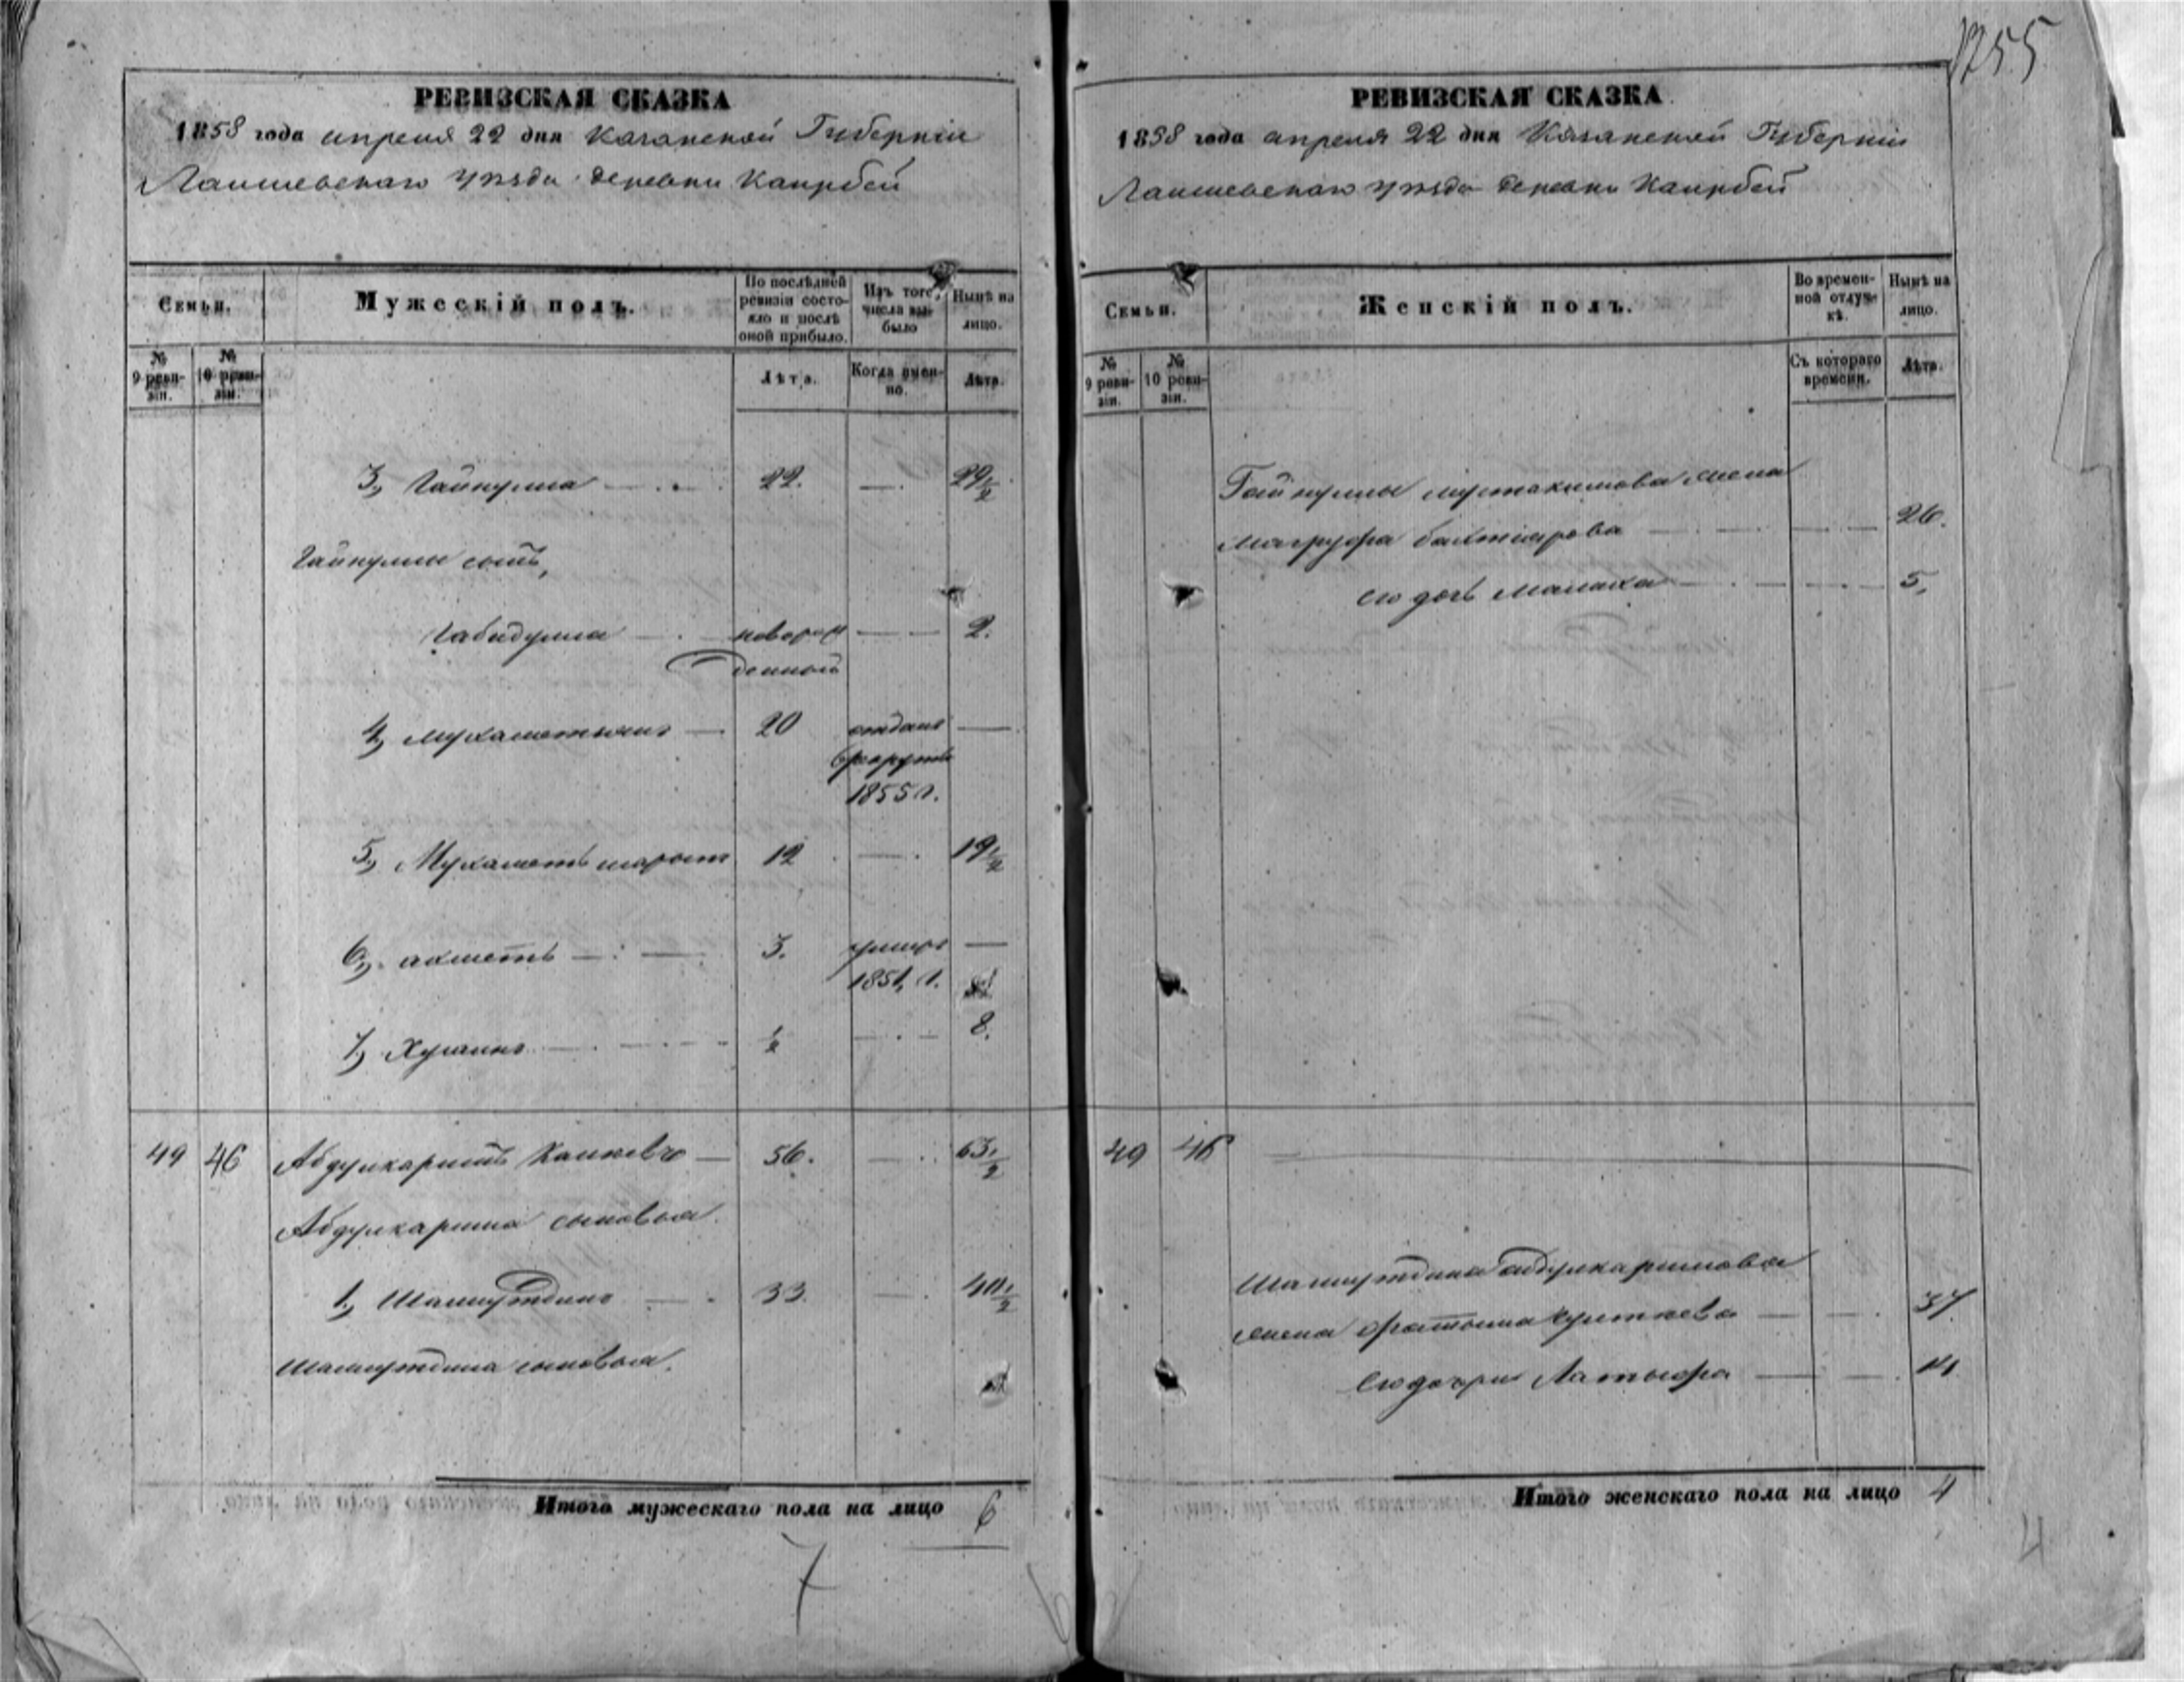 1255
РЕВИЗСКАЯ СКАЗКА
1858 года апреля 22 дня Казанской Губерніи
Лаишевскаго уѣзда деревни Каирбей
Семьи.
Мужескій полъ.
По послѣдней ревизіи состояло и послѣ оной прибыло.
Изъ того числа выбыло
Нынѣ на лицо.
№ 9 ревизіи.
№ 10 ревизіи.
Лѣта.
Когда именно.
Лѣта.
3, Гайнулла 22. — 29 1/2
Гайнуллы сынъ,
Габидулла новорож — 2.
денный
4, Мухаметзянъ — 20 отданъ —
в рекруты
1855 г.
5, Мухаметь шарыпъ 12 — 19 1/2
6, ахметь — 3. умеръ —
1851, г.
7, Хусаинъ 1/2 — 8.
49 46 Абдулкаримъ — 56. — 63 1/2
Абдулкарима сыновья.
1, Шамшутдинъ 33. — 40 1/2
Шамшутдина сыновья.
Итого мужескаго пола на лицо 6
7
РЕВИЗСКАЯ СКАЗКА
1858 года апреля 22 дня Казанской Губерніи
Лаишевскаго уѣзда деревни Каирбей
Семьи.
Женскій полъ.
Во временной отлучкѣ.
Нынѣ на лицо.
№ 9 ревизіи.
№ 10 ревизіи.
Съ котораго времени.
Лѣта.
Гайнуллы мустакимова жена
магруфа бахтіярова — 26.
его дочь малаха — 5,
49 46
Шамшутдина абдулкаримова
жена фатыма — 37.
его дочри Латыфа — 11
Итого женскаго пола на лицо 4
4